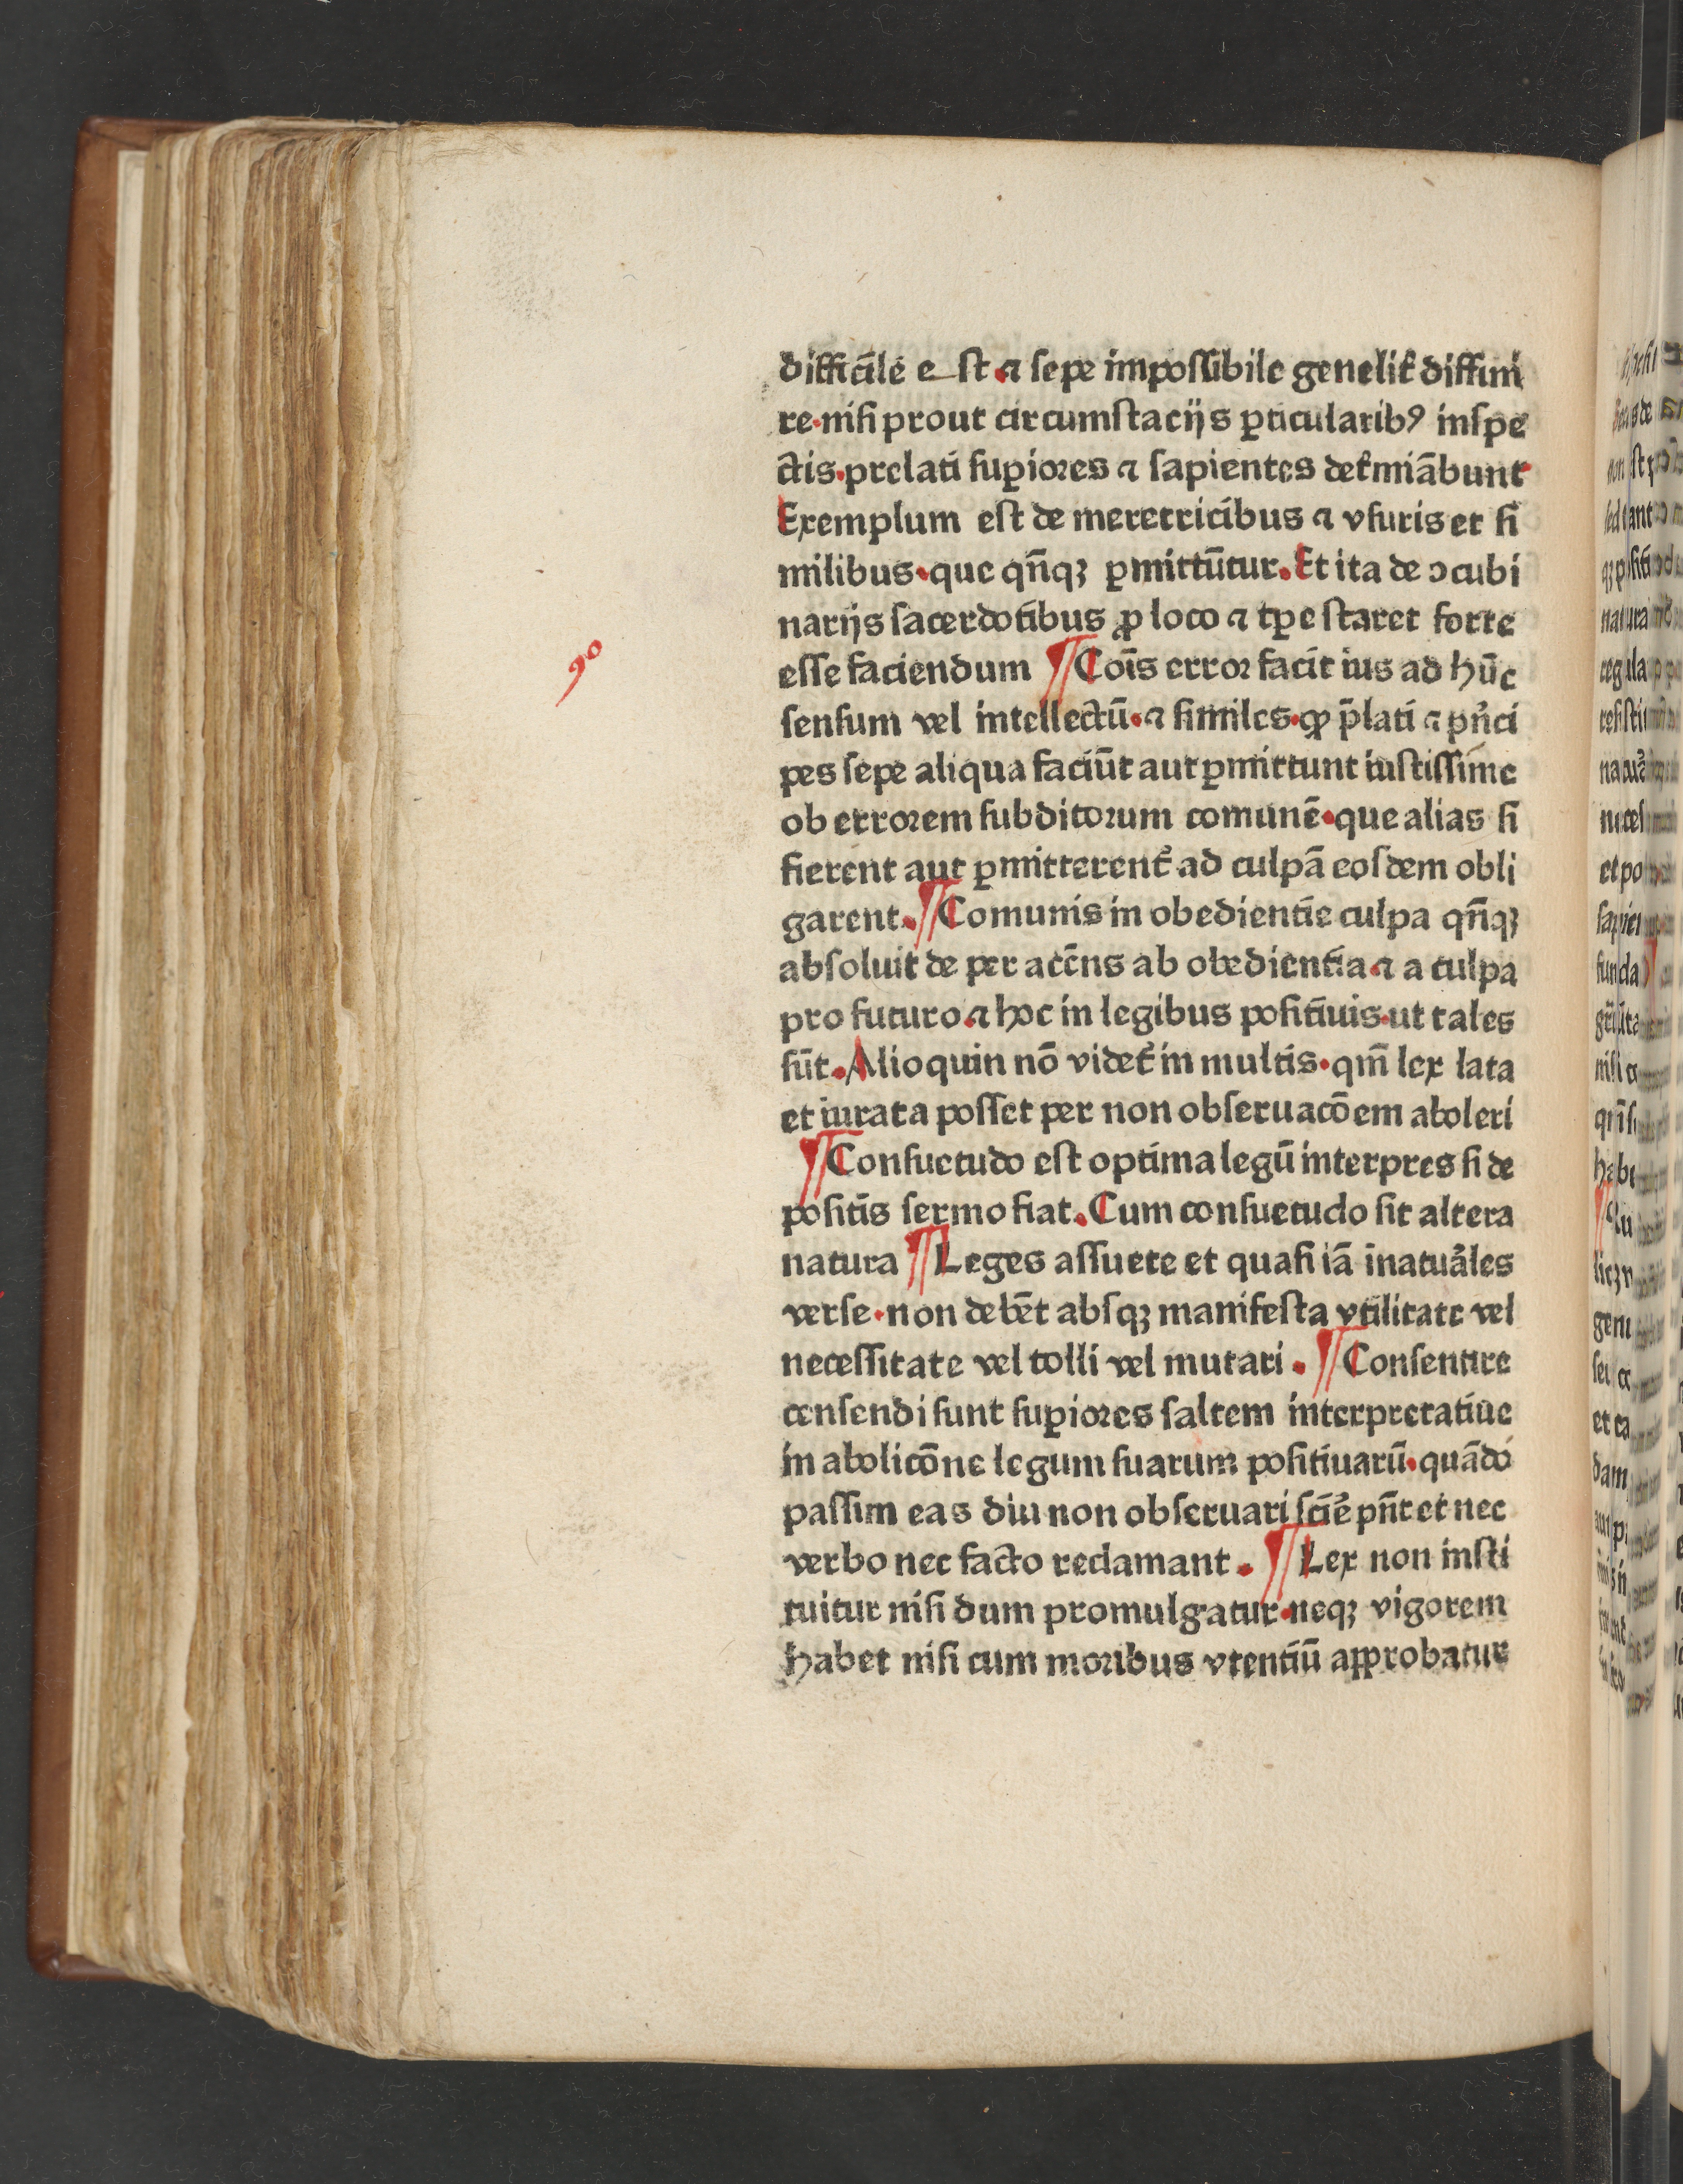 difficile e st. ⁊ sepe impossibile genelit᷑ diffini
re. nisi prout circumstacijs ꝑticularibꝰ inspe
ctis. prelati suꝑiores ⁊ sapientes det᷑miābunt
Exemplum est de meretricibus ⁊ vsuris et si
milibus. que qn̄qꝫ ꝑmittūtur. Et ita de ↄcubi
narijs sacerdotibus ꝓ loco ⁊ tꝑe staret forte
90
esse faciendum ¶ Cois̄ error facit ius ad hūc
sensum vel intellectū. ⁊ similes. ꝙ p̄lati ⁊ pn̓ci
pes sepe aliqua faciūt aut ꝑmittunt iustissime
ob errorem subditorum comunē. que alias si
fierent aut ꝑmitterent᷑ ad culpā eosdem obli
garent. ¶ Comunis in obedientie culpa qn̄qꝫ
absoluit de per accn̄s ab obedientia. ⁊ a culpa
pro futuro. ⁊ hoc in legibus positiuis. ut tales
sūt. Alioquin nō videt᷑ in multis. qm̄ lex lata
et iurata posset per non obseruacōem aboleri
¶ Consuetudo est optima legū interpres si de
positis sermo fiat. Cum consuetudo sit altera
natura ¶ Leges assuete et quasi iā inatuāles
verse. non debēt absqꝫ manifesta vtilitate vel
necessitate vel tolli vel mutari. ¶ Consentire
censendi sunt suꝑiores saltem interpretatiue
in abolicōne legum suarum positiuarū. quādo
passim eas diu non obseruari scīe᷑ pn̄t et nec
verbo nec facto reclamant. ¶ Lex non insti
tuitur nisi dum promulgatur. neqꝫ vigorem
habet nisi cum moribus vtentiū approbatur